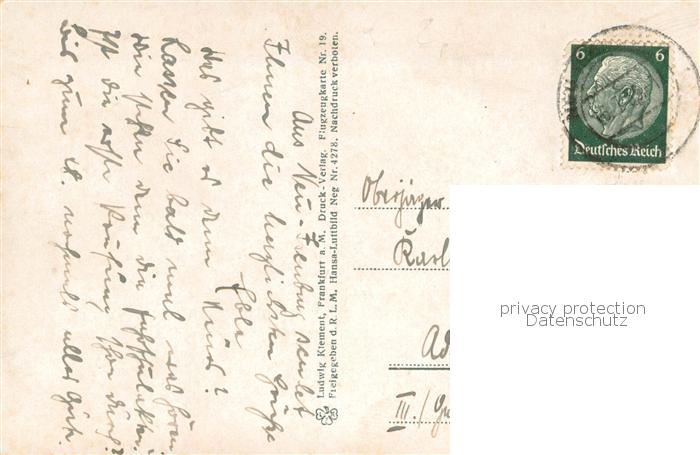 Aus Neu-Isenburg sendet
Ihnen die herzlichsten Grüße
Was gibt es denn Neues?
Lassen Sie bald mal was hören
wie stehen denn die
Ist die erste Prüfung schon durch?
Bis zum nochmals alles Gute.
Ludwig Klement, Frankfurt a. M. Druck-Verlag. Flugzeugkarte Nr. 19.
Freigegeben d. R. L. M. Hansa-Luftbild Neg Nr. 4278. Nachdruck verboten.
6 6
Deutsches Reich
Oberjäger
Karl
Ad
III./
privacy protection
Datenschutz